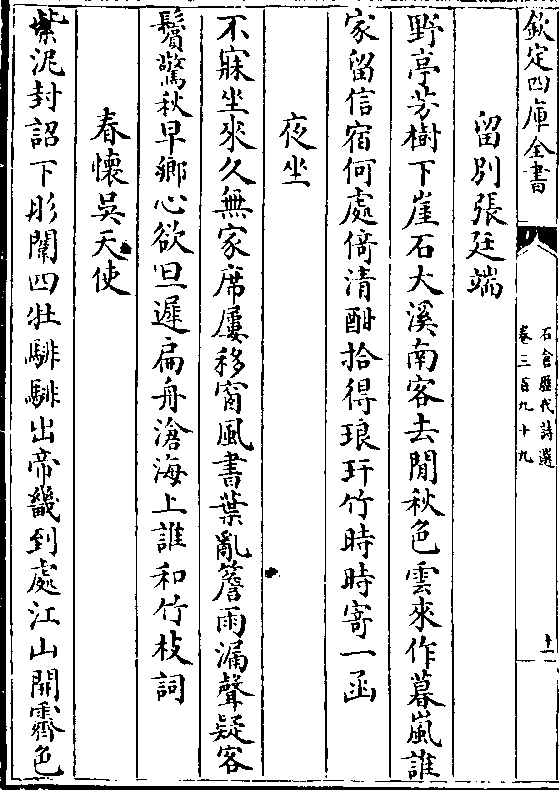 欽定四庫全書
石倉歷代詩選
卷三百九十九
十一
留別張廷端
野亭芳樹下崖石大溪南客去閒秋色雲來作暮嵐誰
家留信宿何處倚清酣拾得琅玕竹時時寄一函
夜坐
不寐坐來久無家席屢移窗風書葉亂簷雨漏聲疑客
鬢驚秋早鄉心欲旦遲扁舟滄海上誰和竹枝詞
春懷吳天使
紫泥封詔下彤闈四牡騑騑出帝畿到處江山開霽色